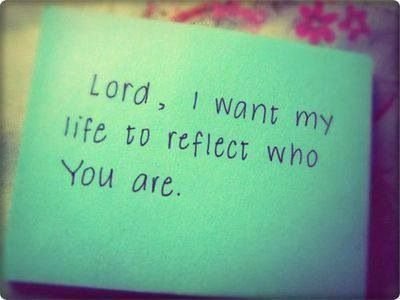 Lord, I want my
life to reflect who
You are.